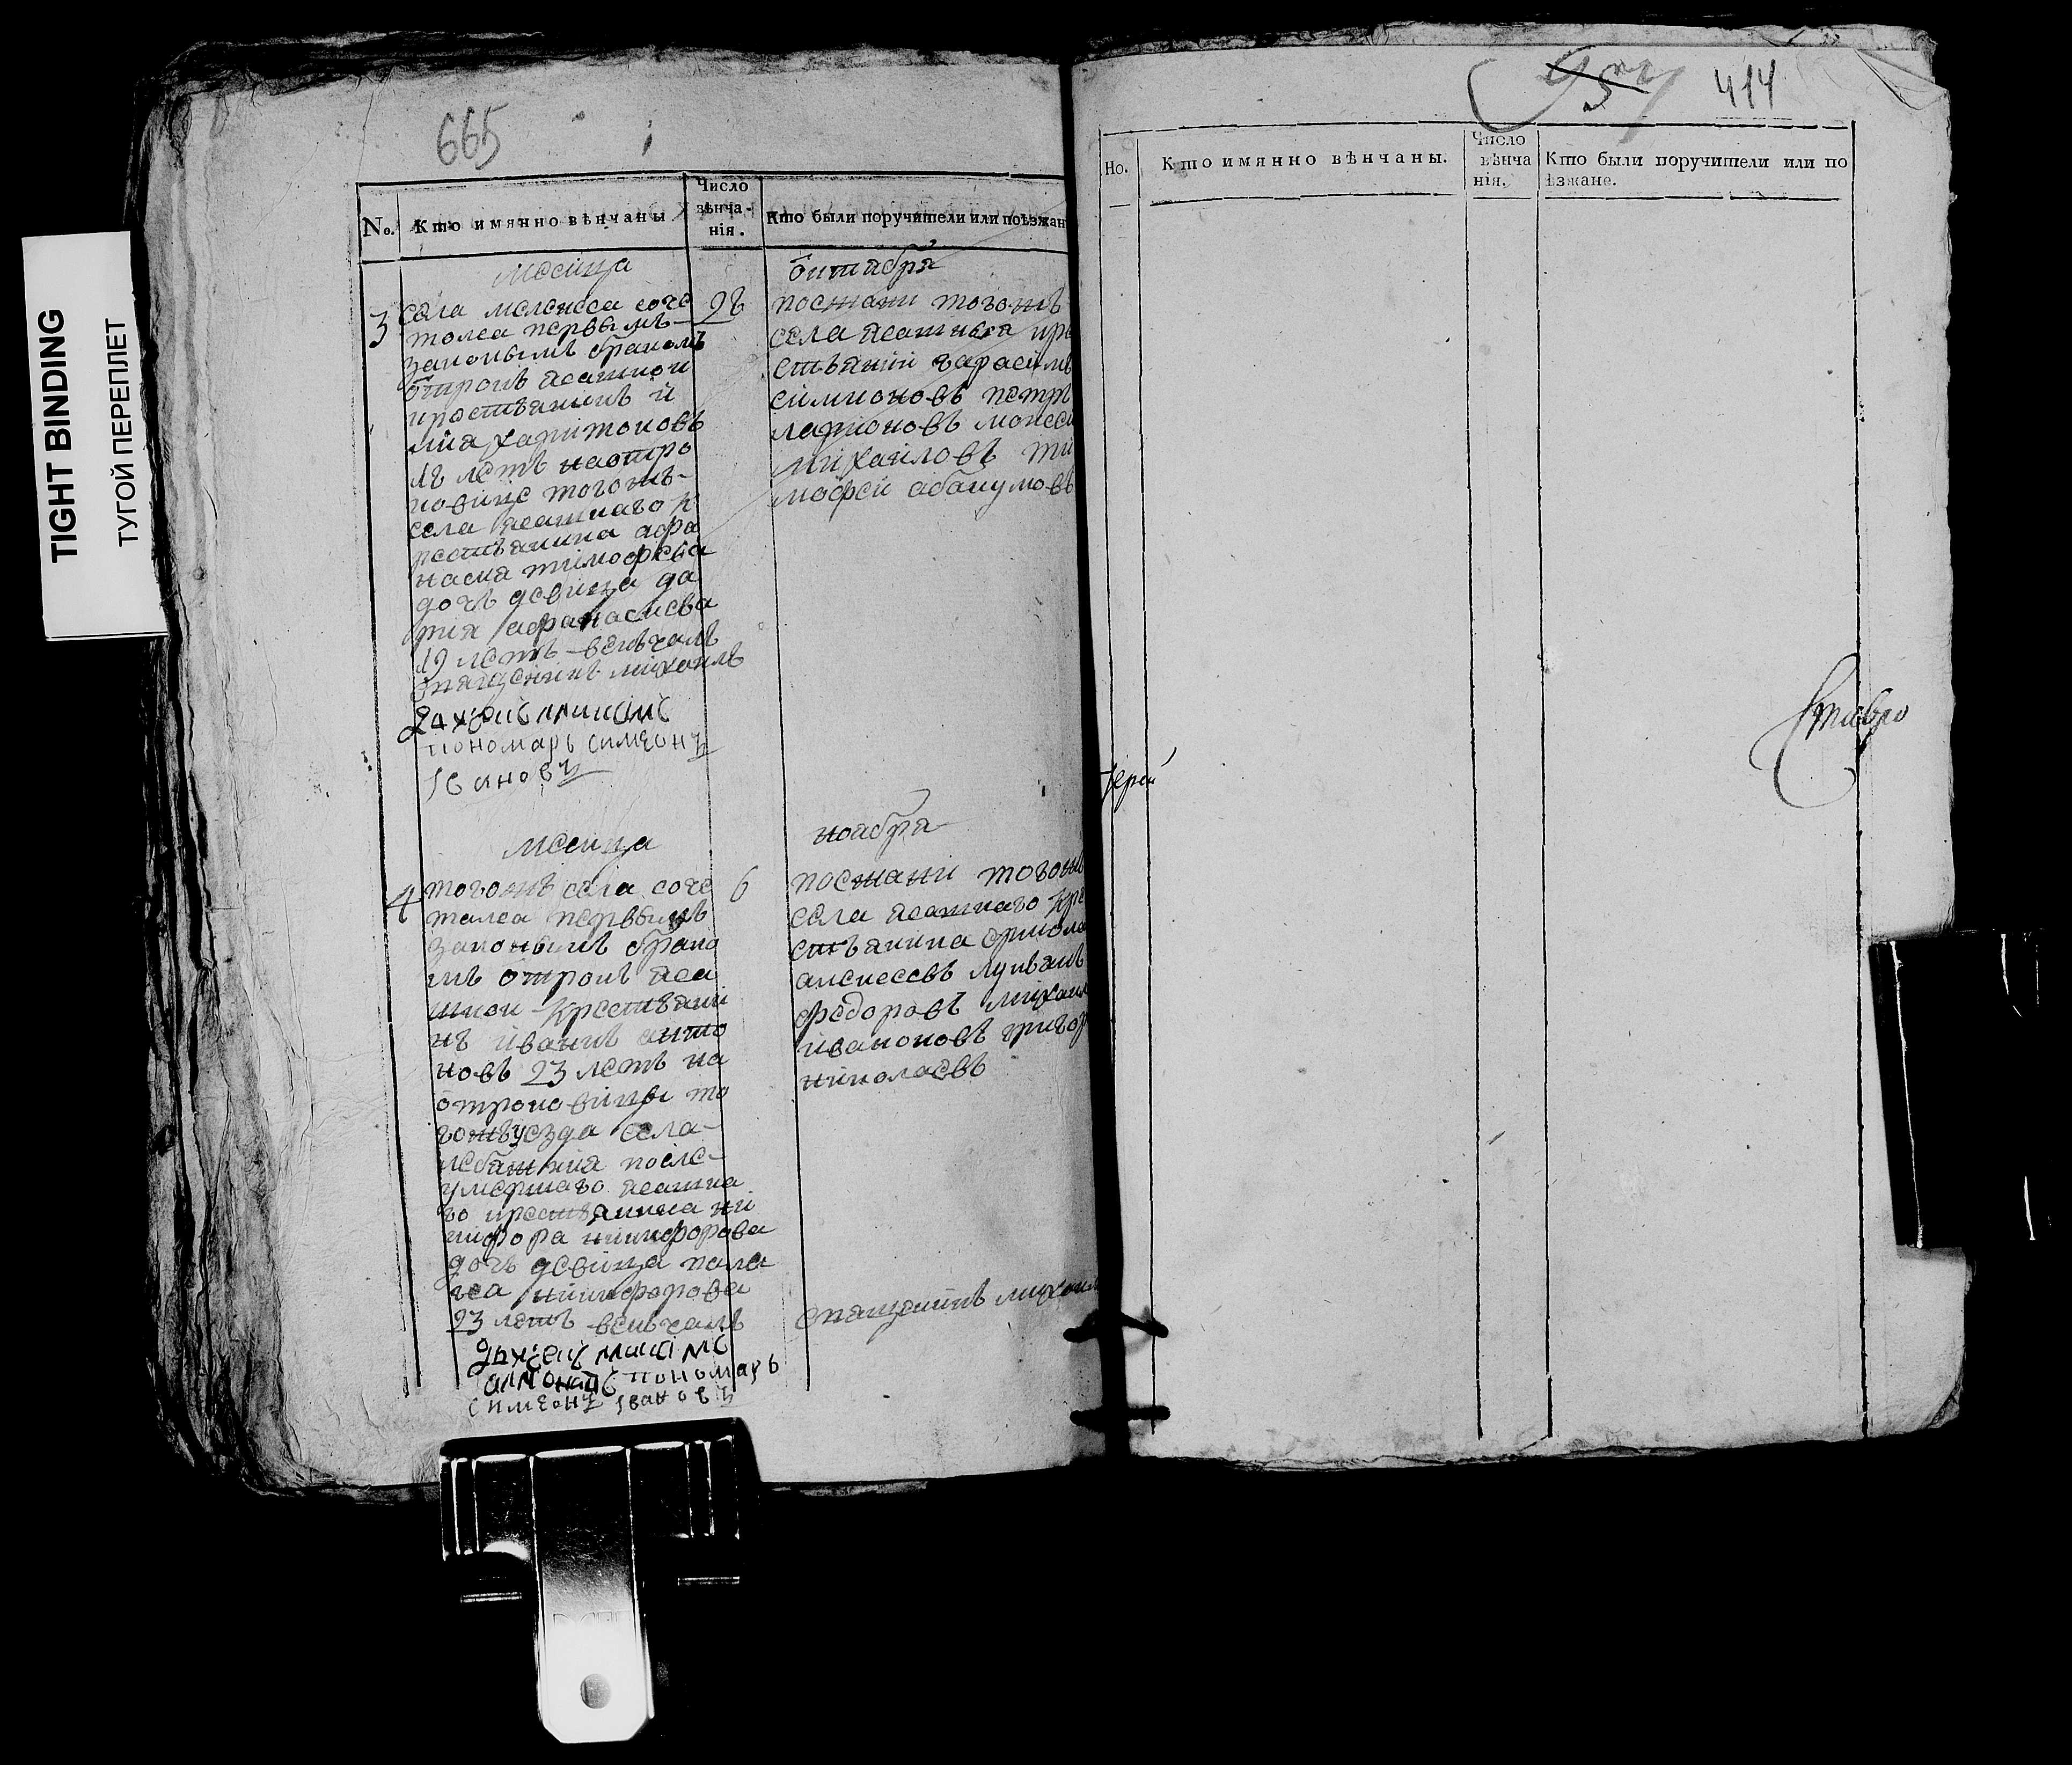 TIGHT BINDING
ТУГОЙ ПЕРЕПЛЕТ
665
No.
Кто имянно вѣнчаны
Число вѣнча-нія.
Кто были поручители или поѣзжан
месица
октября
3
села мелекеса соче
талса первымъ
законымъ бракомъ
отрокъ ясашнои
крестьянинъ
харитоновъ
18 летъ наотро
ковице тогожъ
села ясашнаго к
рестьянина афа
насия тимофева
дочь девица да
рия афанасиева
19 летъ венъчалъ
священикъ михаилъ
пономарь симеонъ
Iвановъ
28
поежани тогожъ
села ясашныя кре
стьянии гарасимъ
симионовъ петръ
ларионовъ моисеи
михаиловъ ти
мофеи абакумовъ
месица
ноября
4
тогожъ села соче
талса первымъ
законымъ брако
мъ отрокъ яса
шнои крестьяни
нъ иванъ анто
новъ 23 летъ на
отроковицы то
гожъ уезда села
после
умершаго ясашна
го крестьянина ни
кифора никифорова
дочь девица пела
гея никифорова
23 летъ венъчалъ
пономарь
симеонъ Iвановъ
6
поежани тогожъ
села ясашнаго кре
стьянина ермола
алексеевъ лукьянъ
федоровъ михаил
ивановъ григор
николаевъ
священикъ михаил
414
Но.
Кто имянно вѣнчаны.
Число вѣнча нія.
Кто были поручители или по ѣзжане.
Iерей
Ставро